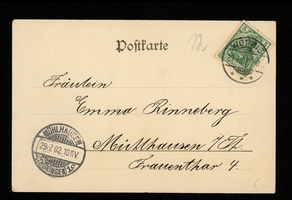 Postkarte
Fräulein
Emma Rinneberg
Mühlhausen i/Th.
Frauenthor 4.
MÜHLHAUSEN
29.7.02.10-11V
(THÜRINGEN)